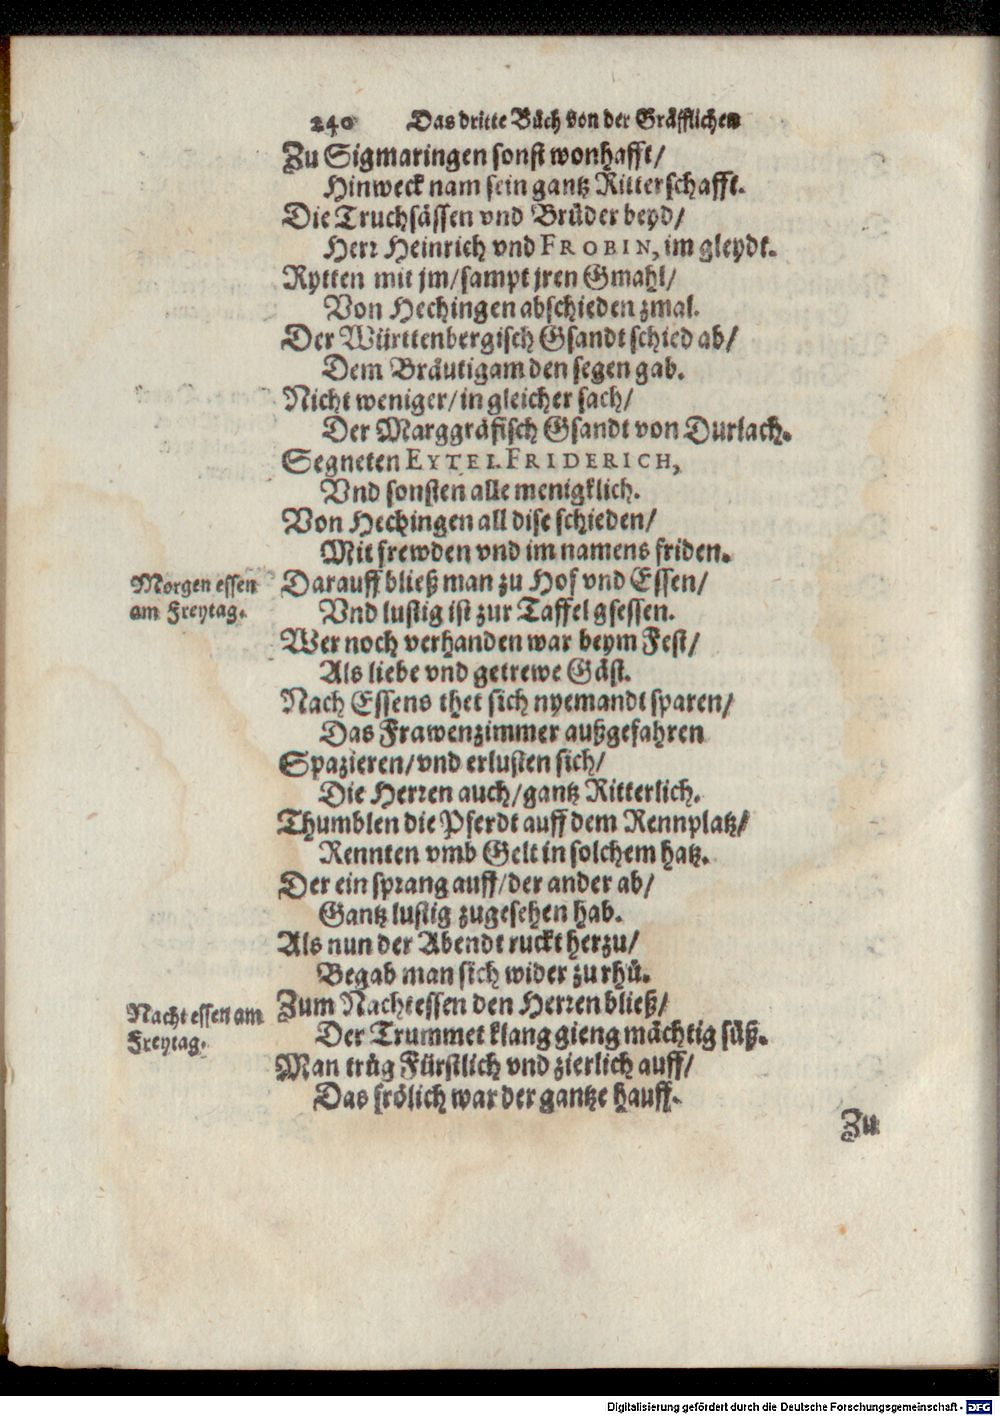 240 Das dritte Bůch von der Gräfflichen
Zu Sigmaringen sonst wonhafft/
Hinweck nam sein gantz Ritterschafft.
Die Truchsässen vnd Brüder beyd/
Herr Heinrich vnd FROBIN, im gleydt.
Rytten mit jm/sampt jren Gmahl/
Von Hechingen abschieden zmal.
Der Württenbergisch Gsandt schied ab/
Dem Bräutigam den segen gab.
Nicht weniger/in gleicher sach/
Der Marggräfisch Gsandt von Durlach.
Segneten EYTEL FRIDERICH,
Vnd sonsten alle menigklich.
Von Hechingen all dise schieden/
Mit frewden vnd im namens friden.
Morgen essen am Freytag.
Darauff bließ man zu Hof vnd Essen/
Vnd lustig ist zur Taffel gsessen.
Wer noch verhanden war beym Fest/
Als liebe vnd getrewe Gäst.
Nach Essens thet sich nyemandt sparen/
Das Frawenzimmer außgefahren
Spazieren/vnd erlusten sich/
Die Herren auch/gantz Ritterlich.
Thumblen die Pferdt auff dem Rennplatz/
Rennten vmb Gelt in solchem hatz.
Der ein sprang auff/der ander ab/
Gantz lustig zugesehen hab.
Als nun der Abendt ruckt herzu/
Begab man sich wider zu rhů.
Nacht essen am Freytag.
Zum Nachtessen den Herren bließ/
Der Trummet klang gieng mächtig süß.
Man trůg Fürstlich vnd zierlich auff/
Das frölich war der gantze hauff.
Zu
Digitalisierung gefördert durch die Deutsche Forschungsgemeinschaft - DFG